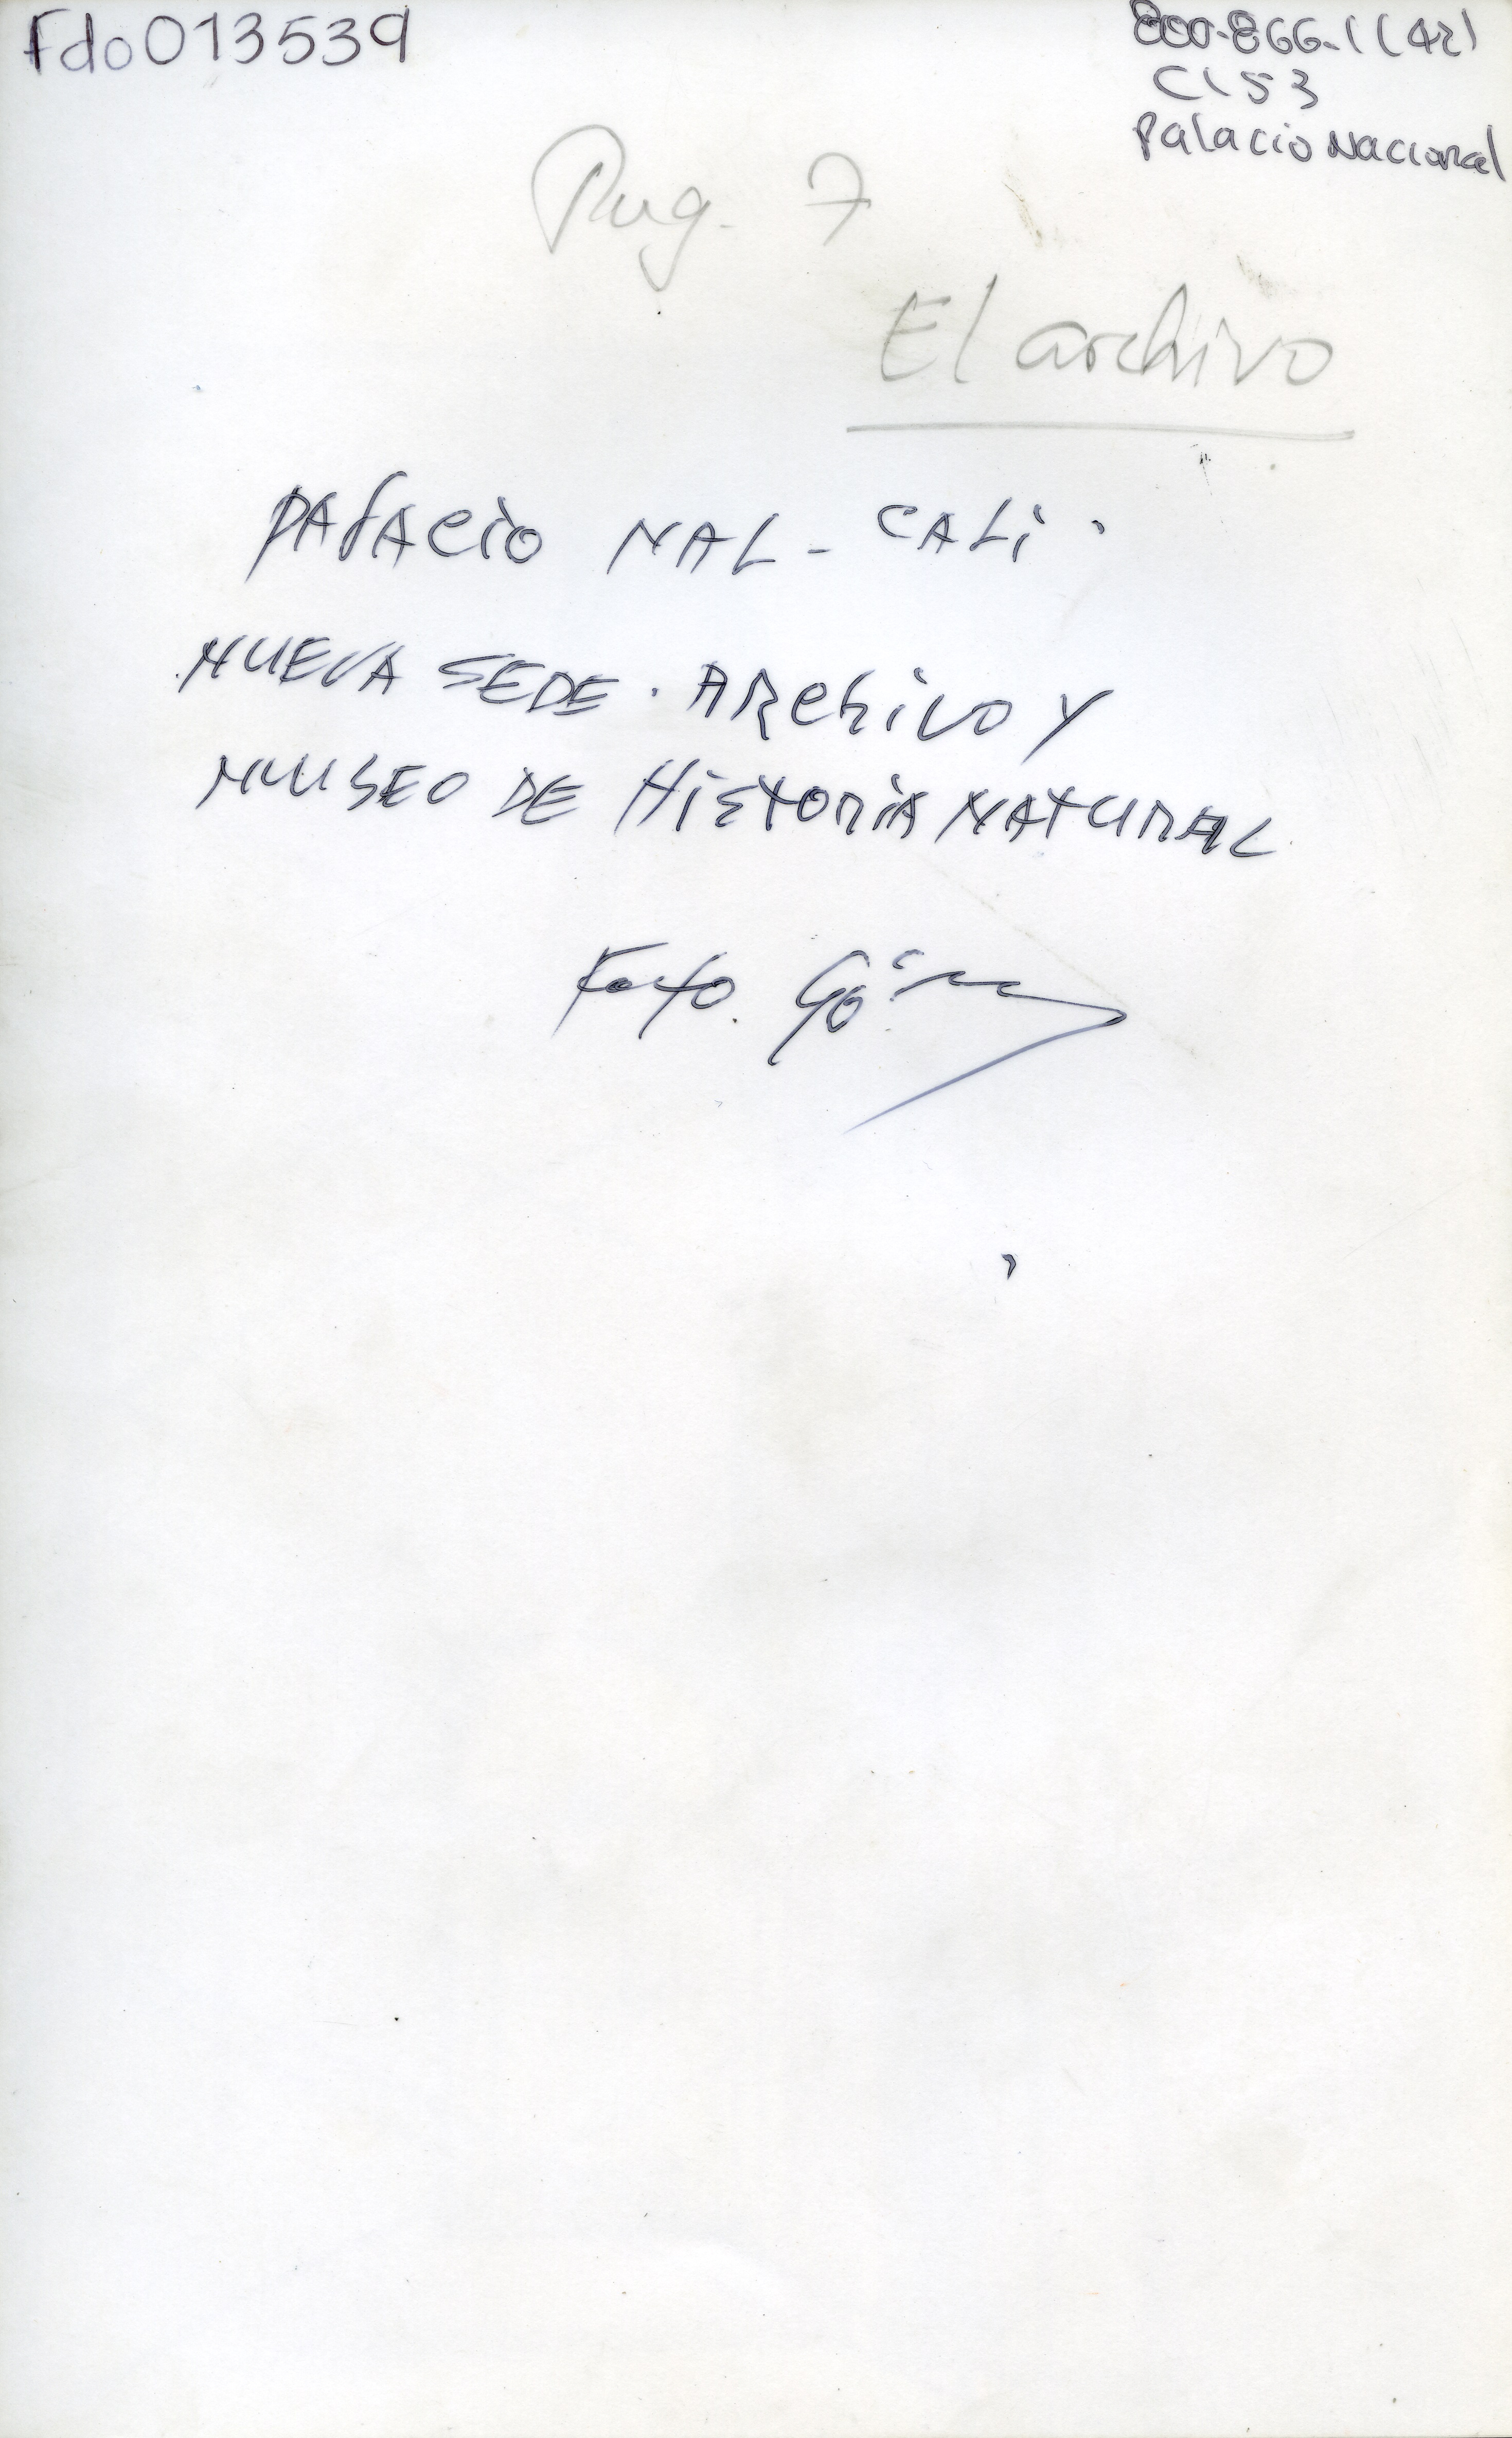 Fdo013539
800-866-1 (42)
C153
Palacio Nacional
Pag. 7
El archivo
PALACIO NAL - CALI.
NUEVA SEDE. ARCHIVO Y
MUSEO DE HISTORIA NATURAL
Foto.